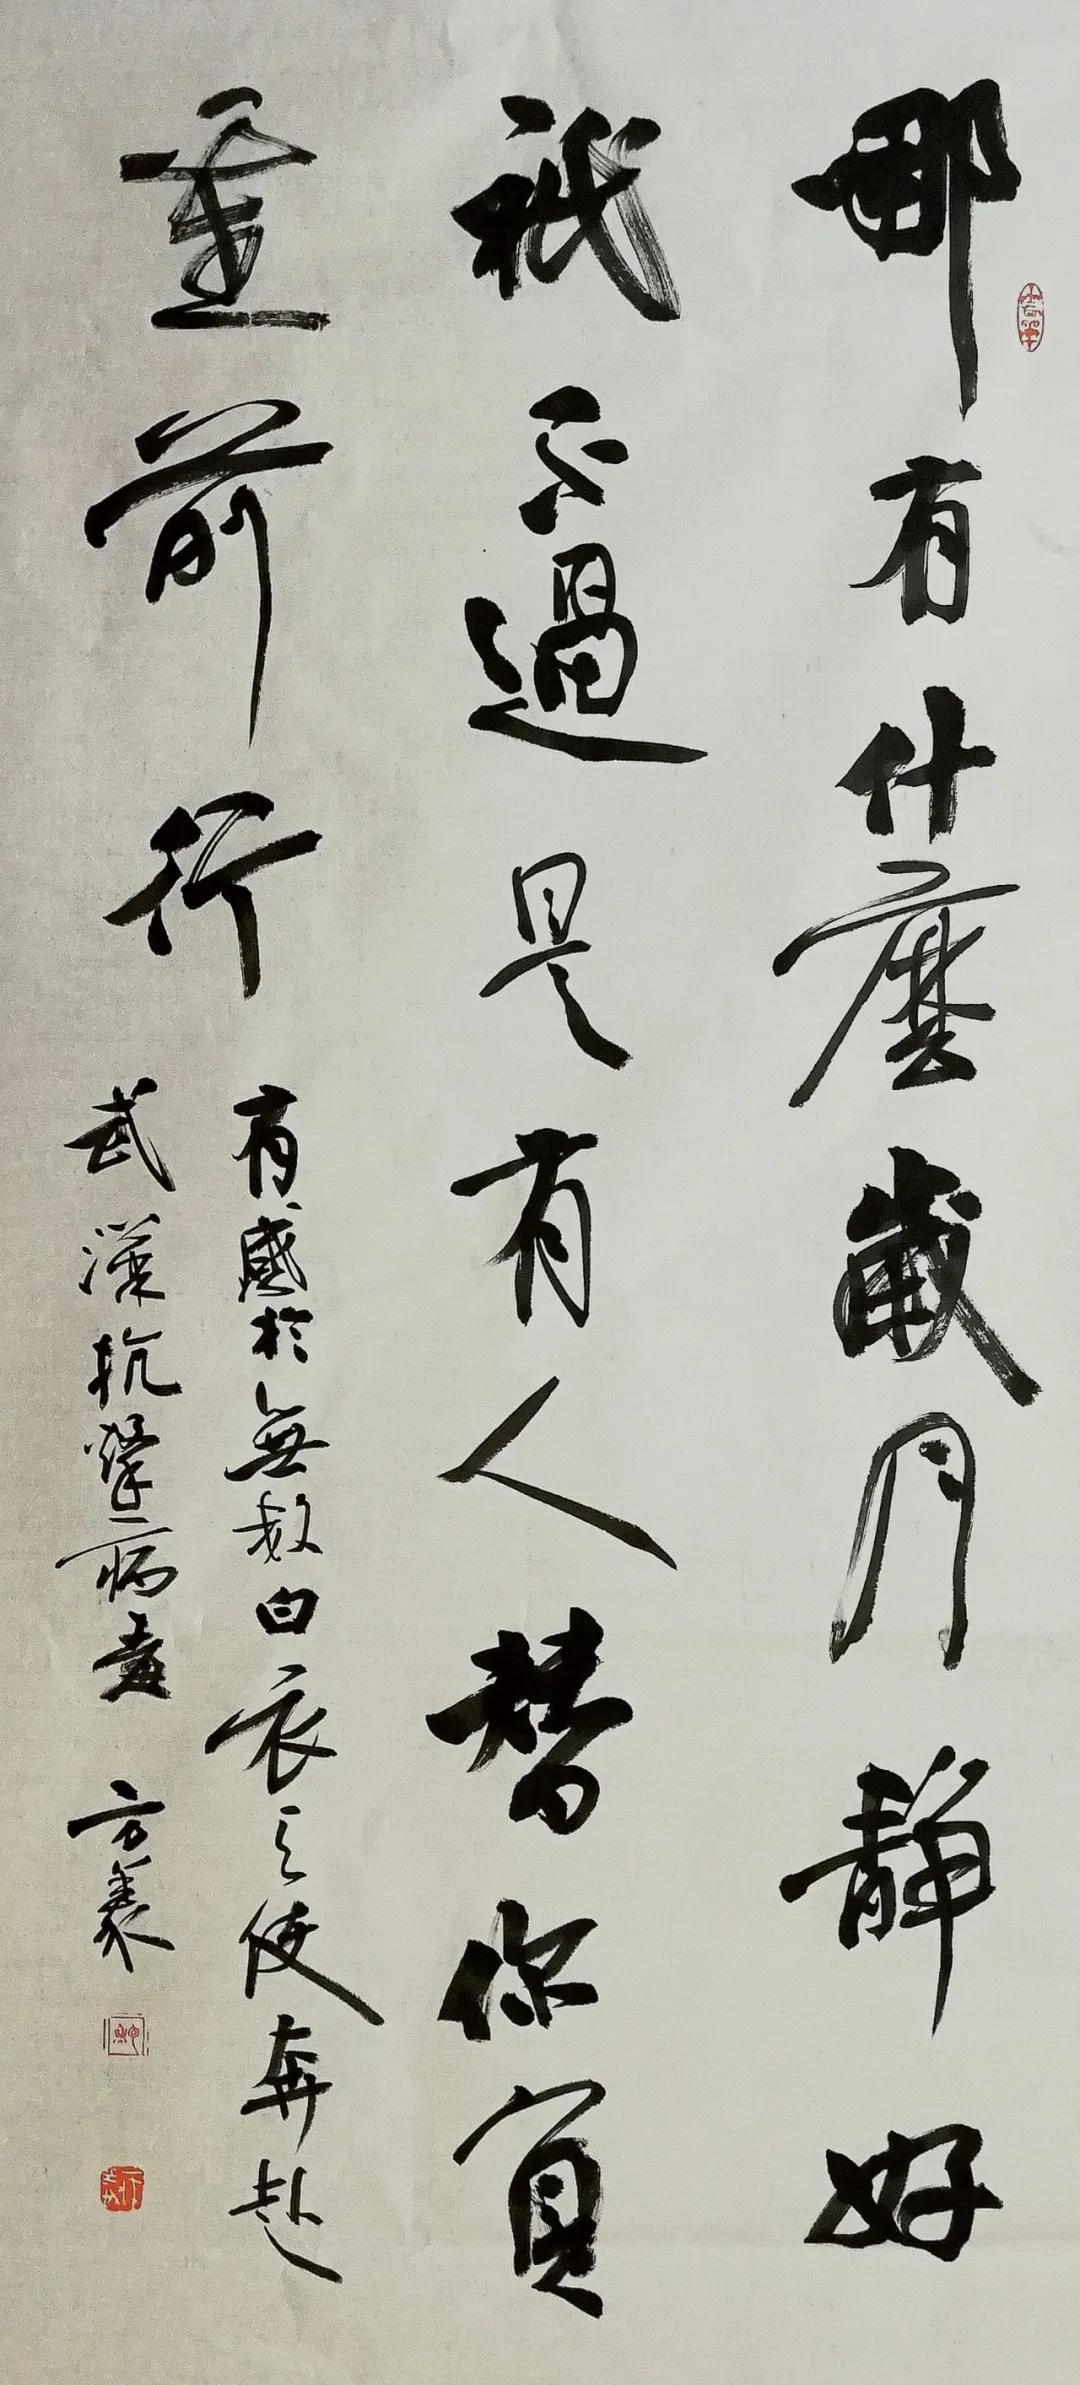 哪有什麼歲月靜好
祇不過是有人替你負
重前行
有感於無數白衣之使奔赴
武漢抗擊病毒 方義